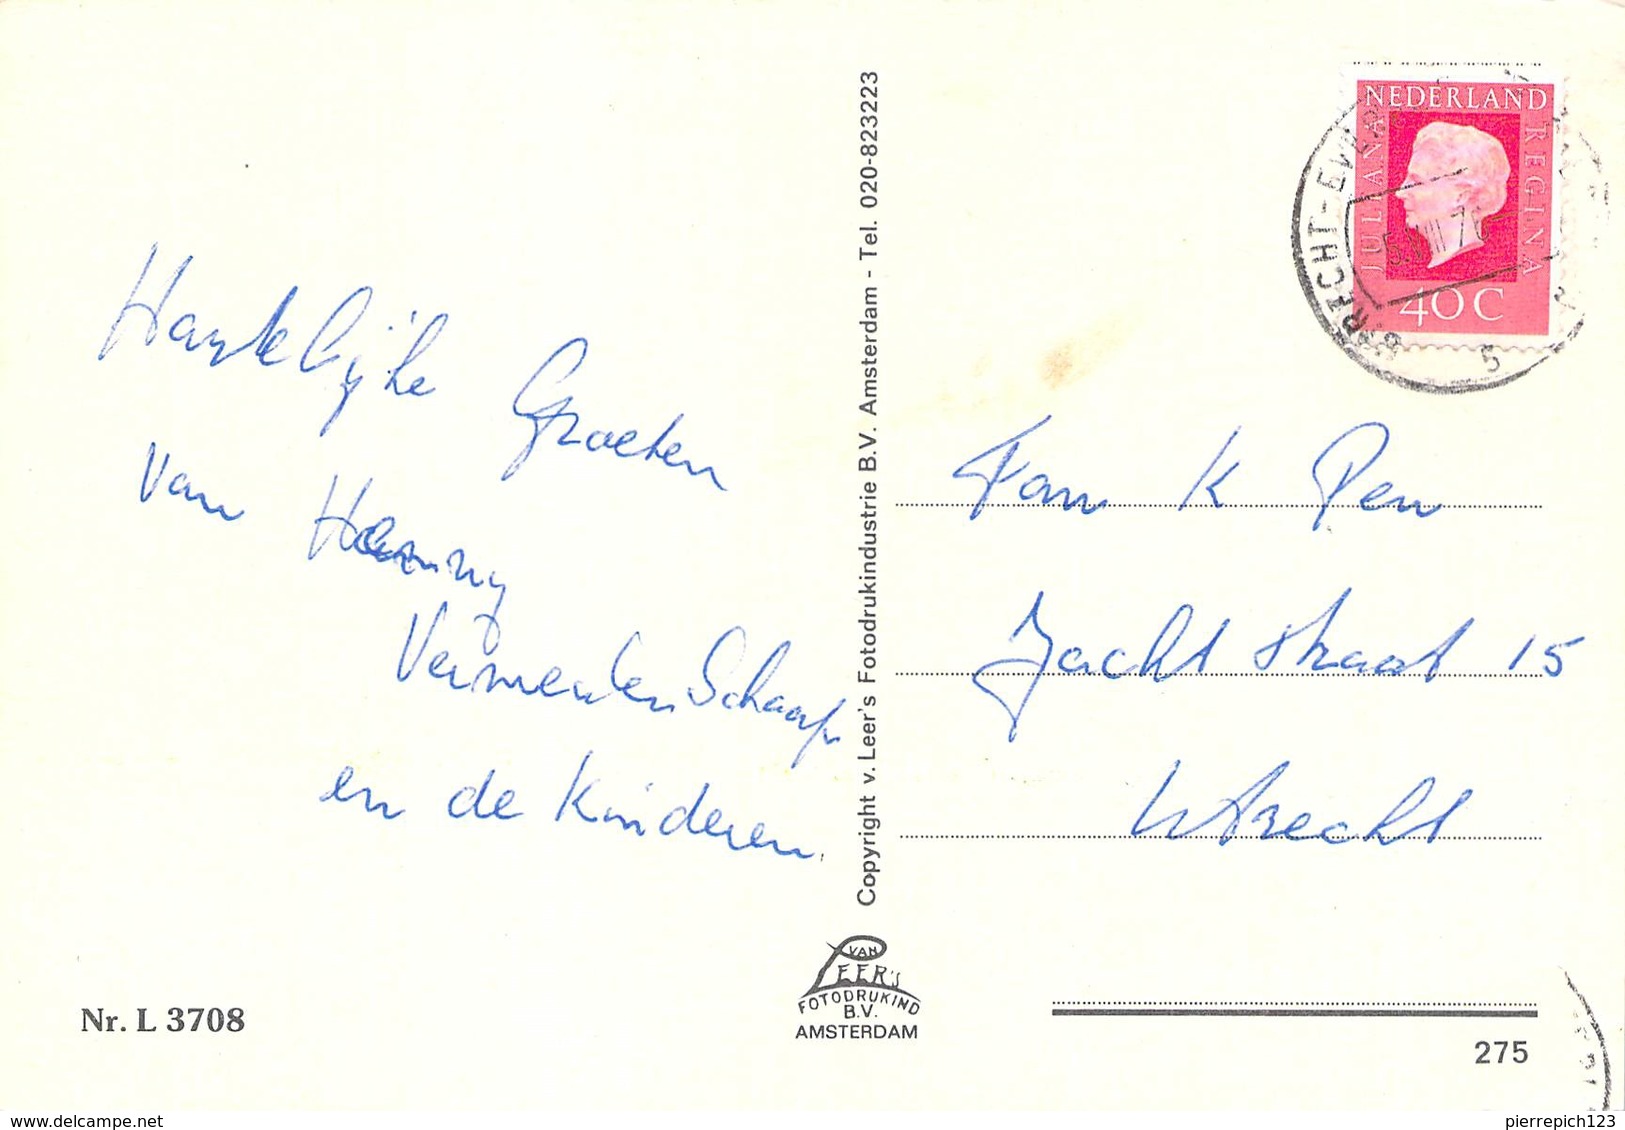 Hartelijke Groeten
van Henny
Vermeulen Schaap
en de Kinderen.
Nr. L 3708
Copyright v. Leer's Fotodrukindustrie B.V. Amsterdam - Tel. 020-823223
VAN
LEER'S
FOTODRUKIND
B.V.
AMSTERDAM
NEDERLAND
JULIANA REGINA
40 C
5 VIII 76
5
Fam K Pen
Jacht straat 15
Utrecht
275
delcampe.net
pierrepich123